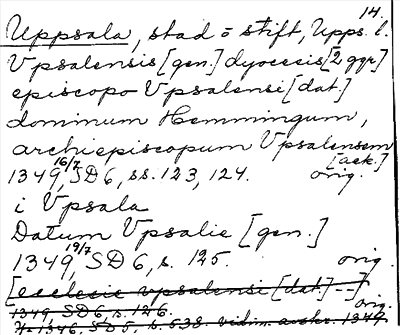 14.
Uppsala, stad o stift, Upps. l.
Vpsalensis [gen.] dyocesis [2 ggr]
episcopo Vpsalensi [dat.]
dominum Hemmingum,
archiepiscopum Vpsalensem
[ack.]
1349 16/7, SD 6, ss. 123, 124. orig.
i Vpsala
Datum Vpsalie [gen.]
1349 19/7, SD 6, s. 125. orig.
[ecclesie vpsalensi [dat.] –]
1349, SD 6, s. 126. orig.
1346, SD 5, s. 538. vidim. avskr. 1349